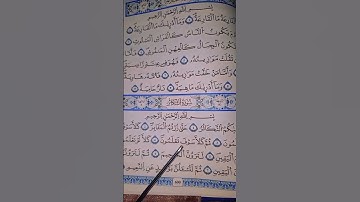 بِسْمِ اللَّهِ الرَّحْمَٰنِ الرَّحِيمِ
مَا الْقَارِعَةُ ۝ وَمَا أَدْرَىٰكَ مَا الْقَارِعَةُ ۝
يَكُونُ النَّاسُ كَالْفَرَاشِ الْمَبْثُوثِ ۝
وَتَكُونُ الْجِبَالُ كَالْعِهْنِ الْمَنْفُوشِ ۝
ثَقُلَتْ مَوَازِينُهُ ۝ فَهُوَ فِي عِيشَةٍ رَاضِيَةٍ
وَأَمَّا مَنْ خَفَّتْ مَوَازِينُهُ ۝ فَأُمُّهُ هَاوِيَةٌ
۝ وَمَا أَدْرَىٰكَ مَا هِيَهْ ۝ نَارٌ حَامِيَةٌ ۝
سُورَةُ التَّكَاثُرِ
بِسْمِ اللَّهِ الرَّحْمَٰنِ الرَّحِيمِ
التَّكَاثُرُ ۝ حَتَّىٰ زُرْتُمُ الْمَقَابِرَ ۝ كَلَّا سَوْفَ
۝ ثُمَّ كَلَّا سَوْفَ تَعْلَمُونَ ۝ كَلَّا لَوْ تَعْلَمُونَ
الْيَقِينِ ۝ لَتَرَوُنَّ الْجَحِيمَ ۝ ثُمَّ
الْيَقِينِ ۝ ثُمَّ لَتُسْأَلُنَّ يَوْمَئِذٍ عَنِ النَّعِيمِ